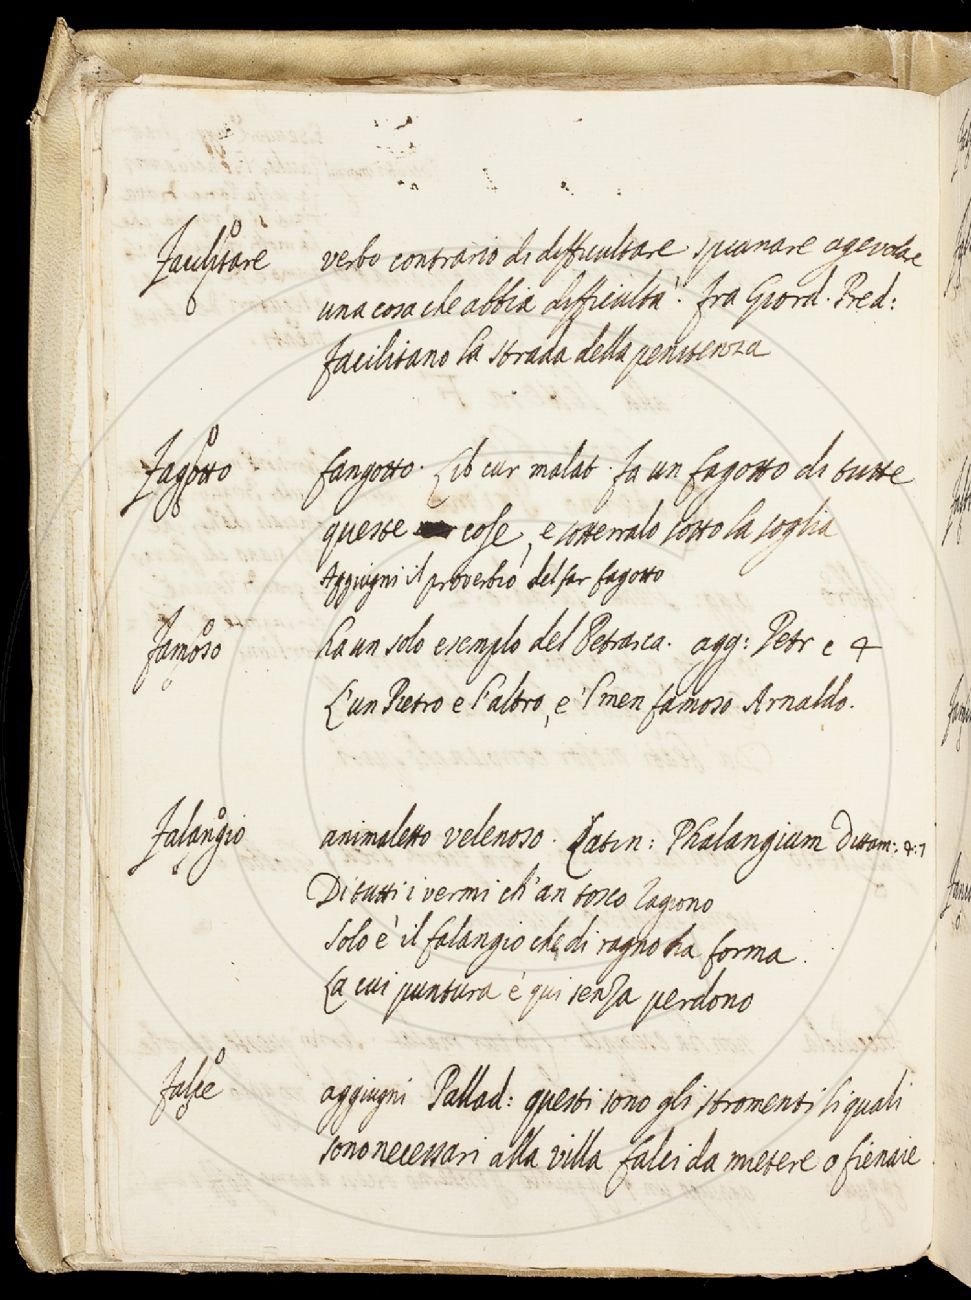 Facilitare verbo contrario di difficultare spianare agevolare
una cosa che abbia difficultà. Fra Giord. Pred:
facilitano la strada della penitenza
Fagotto fangotto. Lib cur malat. fa un fagotto di tutte
queste cose, e sotterralo sotto la soglia
Aggiugni il proverbio del far fagotto
Famoso ha un solo esemplo del Petrarca. agg: Petr c 4
L'un Pietro e l'altro, e 'l men famoso Arnaldo.
Falangio animaletto velenoso. Latin: Phalangium Dittam: 4:7
Di tutti i vermi ch' an tosco ragiono
Solo è il falangio che di ragno ha forma
La cui puntura è qui senza perdono
Falce aggiugni Pallad: questi sono gli stromenti li quali
sono necessari alla villa falci da mietere o fienaie